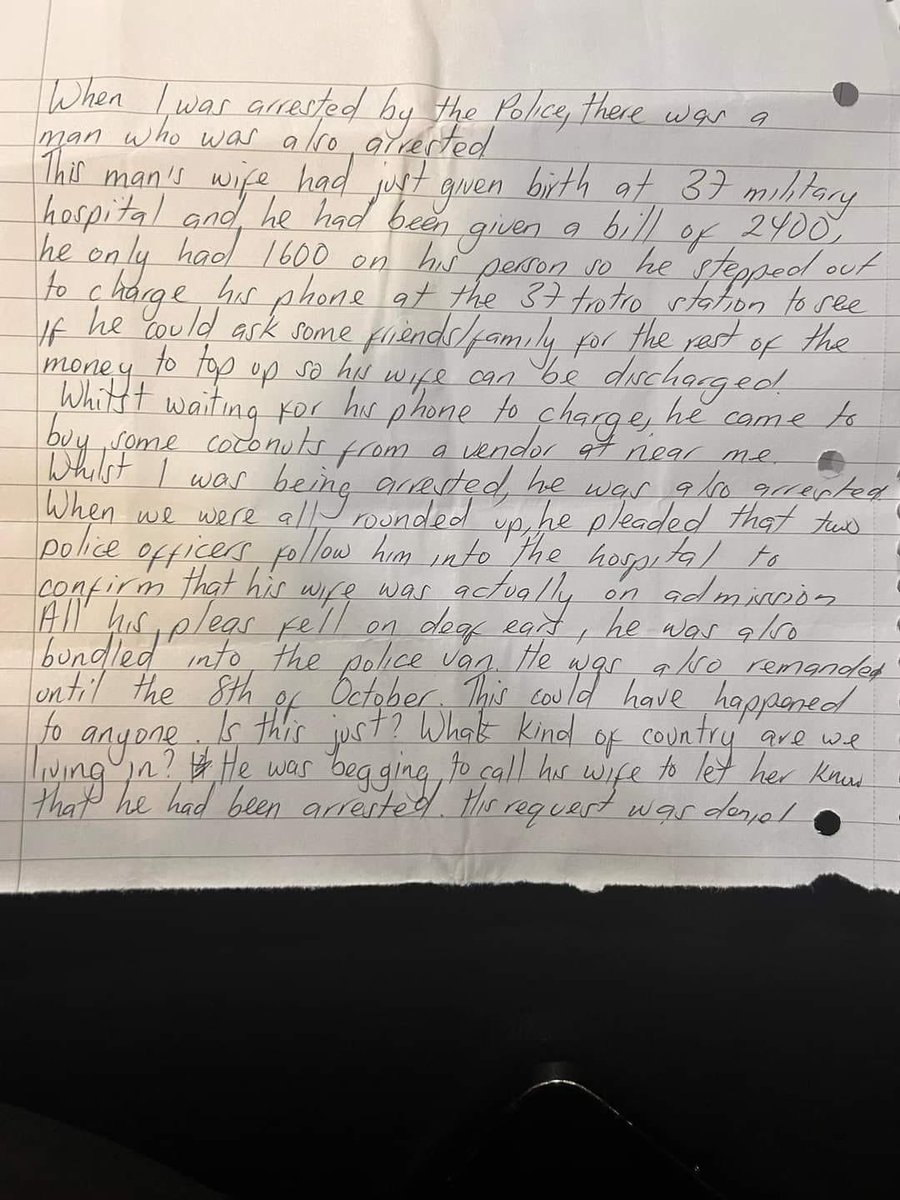 When I was arrested by the Police, there was a
man who was also arrested
This man's wife had just given birth at 37 military
hospital and he had been given a bill of 2400,
he only had 1600 on his person so he stepped out
to charge his phone at the 37 trotro station to see
If he could ask some friends/family for the rest of the
money to top up so his wife can be discharged.
Whilst waiting for his phone to charge, he came to
buy some coconuts from a vendor at near me.
Whilst I was being arrested, he was also arrested
When we were all rounded up, he pleaded that two
police officers follow him into the hospital to
confirm that his wife was actually on admission
All his pleas fell on deaf ears, he was also
bundled into the police van. He was also remanded
until the 8th of October. This could have happened
to anyone. Is this just? What kind of country are we
living in? He was begging to call his wife to let her know
that he had been arrested. His request was denied